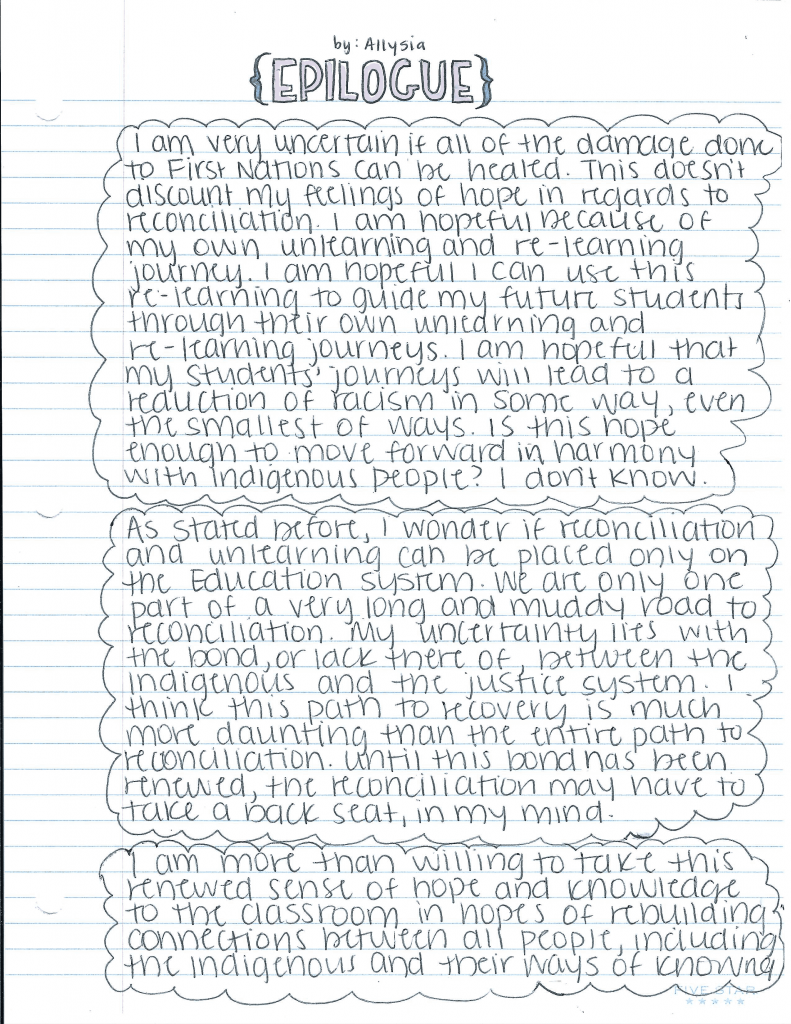 by: Allysia
{EPILOGUE}
I am very uncertain if all of the damage done
to First Nations can be healed. This doesn't
discount my feelings of hope in regards to
reconciliation. I am hopeful because of
my own unlearning and re-learning
journey. I am hopeful I can use this
re-learning to guide my future students
through their own unlearning and
re-learning journeys. I am hopefull that
my students' journeys will lead to a
reduction of racism in some way, even
the smallest of ways. Is this hope
enough to move forward in harmony
with Indigenous people? I don't know.
As stated before, I wonder if reconciliation
and unlearning can be placed only on
the Education system. We are only one
part of a very long and muddy road to
reconciliation. My uncertainty lies with
the bond, or lack there of, between the
Indigenous and the justice system. I
think this path to recovery is much
more daunting than the entire path to
reconciliation. Until this bond has been
renewed, the reconciliation may have to
take a back seat, in my mind.
I am more than willing to take this
renewed sense of hope and knowledge
to the classroom in hopes of rebuilding
connections between all people, including
the Indigenous and their ways of knowing
FIVE STAR